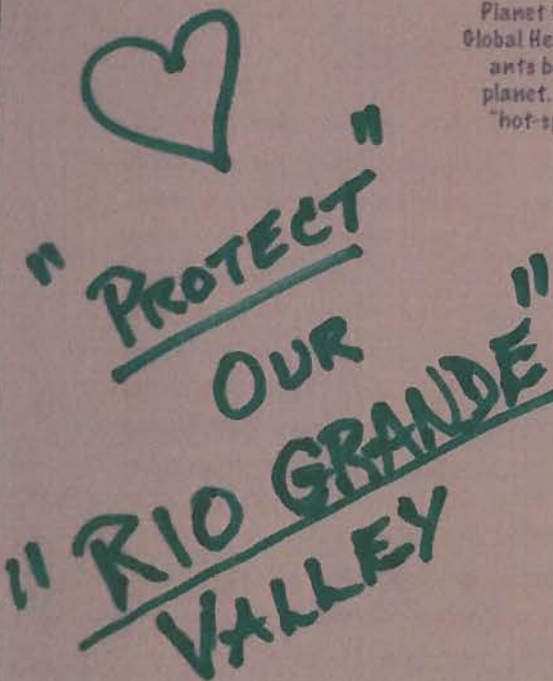 Planet
Global He
ants b
planet.
"hot-sp
"PROTECT"
OUR
"RIO GRANDE"
VALLEY